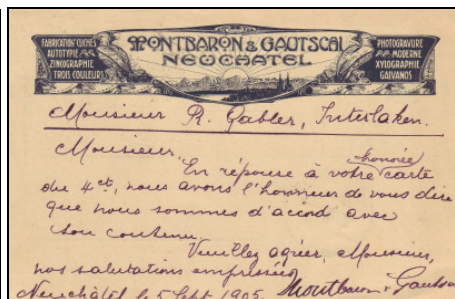 FABRICATION CLICHÉS
AUTOTYPIE
ZINCOGRAPHIE
TROIS COULEURS
MONTBARON & GAUTSCHI
NEUCHATEL
PHOTOGRAVURE
MODERNE
XYLOGRAPHIE
GALVANOS
Monsieur R. Gabler, Interlaken.
Monsieur,
honorée
En réponse à votre carte
du 4 ct, nous avons l'honneur de vous dire
que nous sommes d'accord avec
son contenu.
Veuillez agréer, Monsieur,
nos salutations empressées
Neuchâtel le 5 Sept 1905. Montbaron & Gautschi